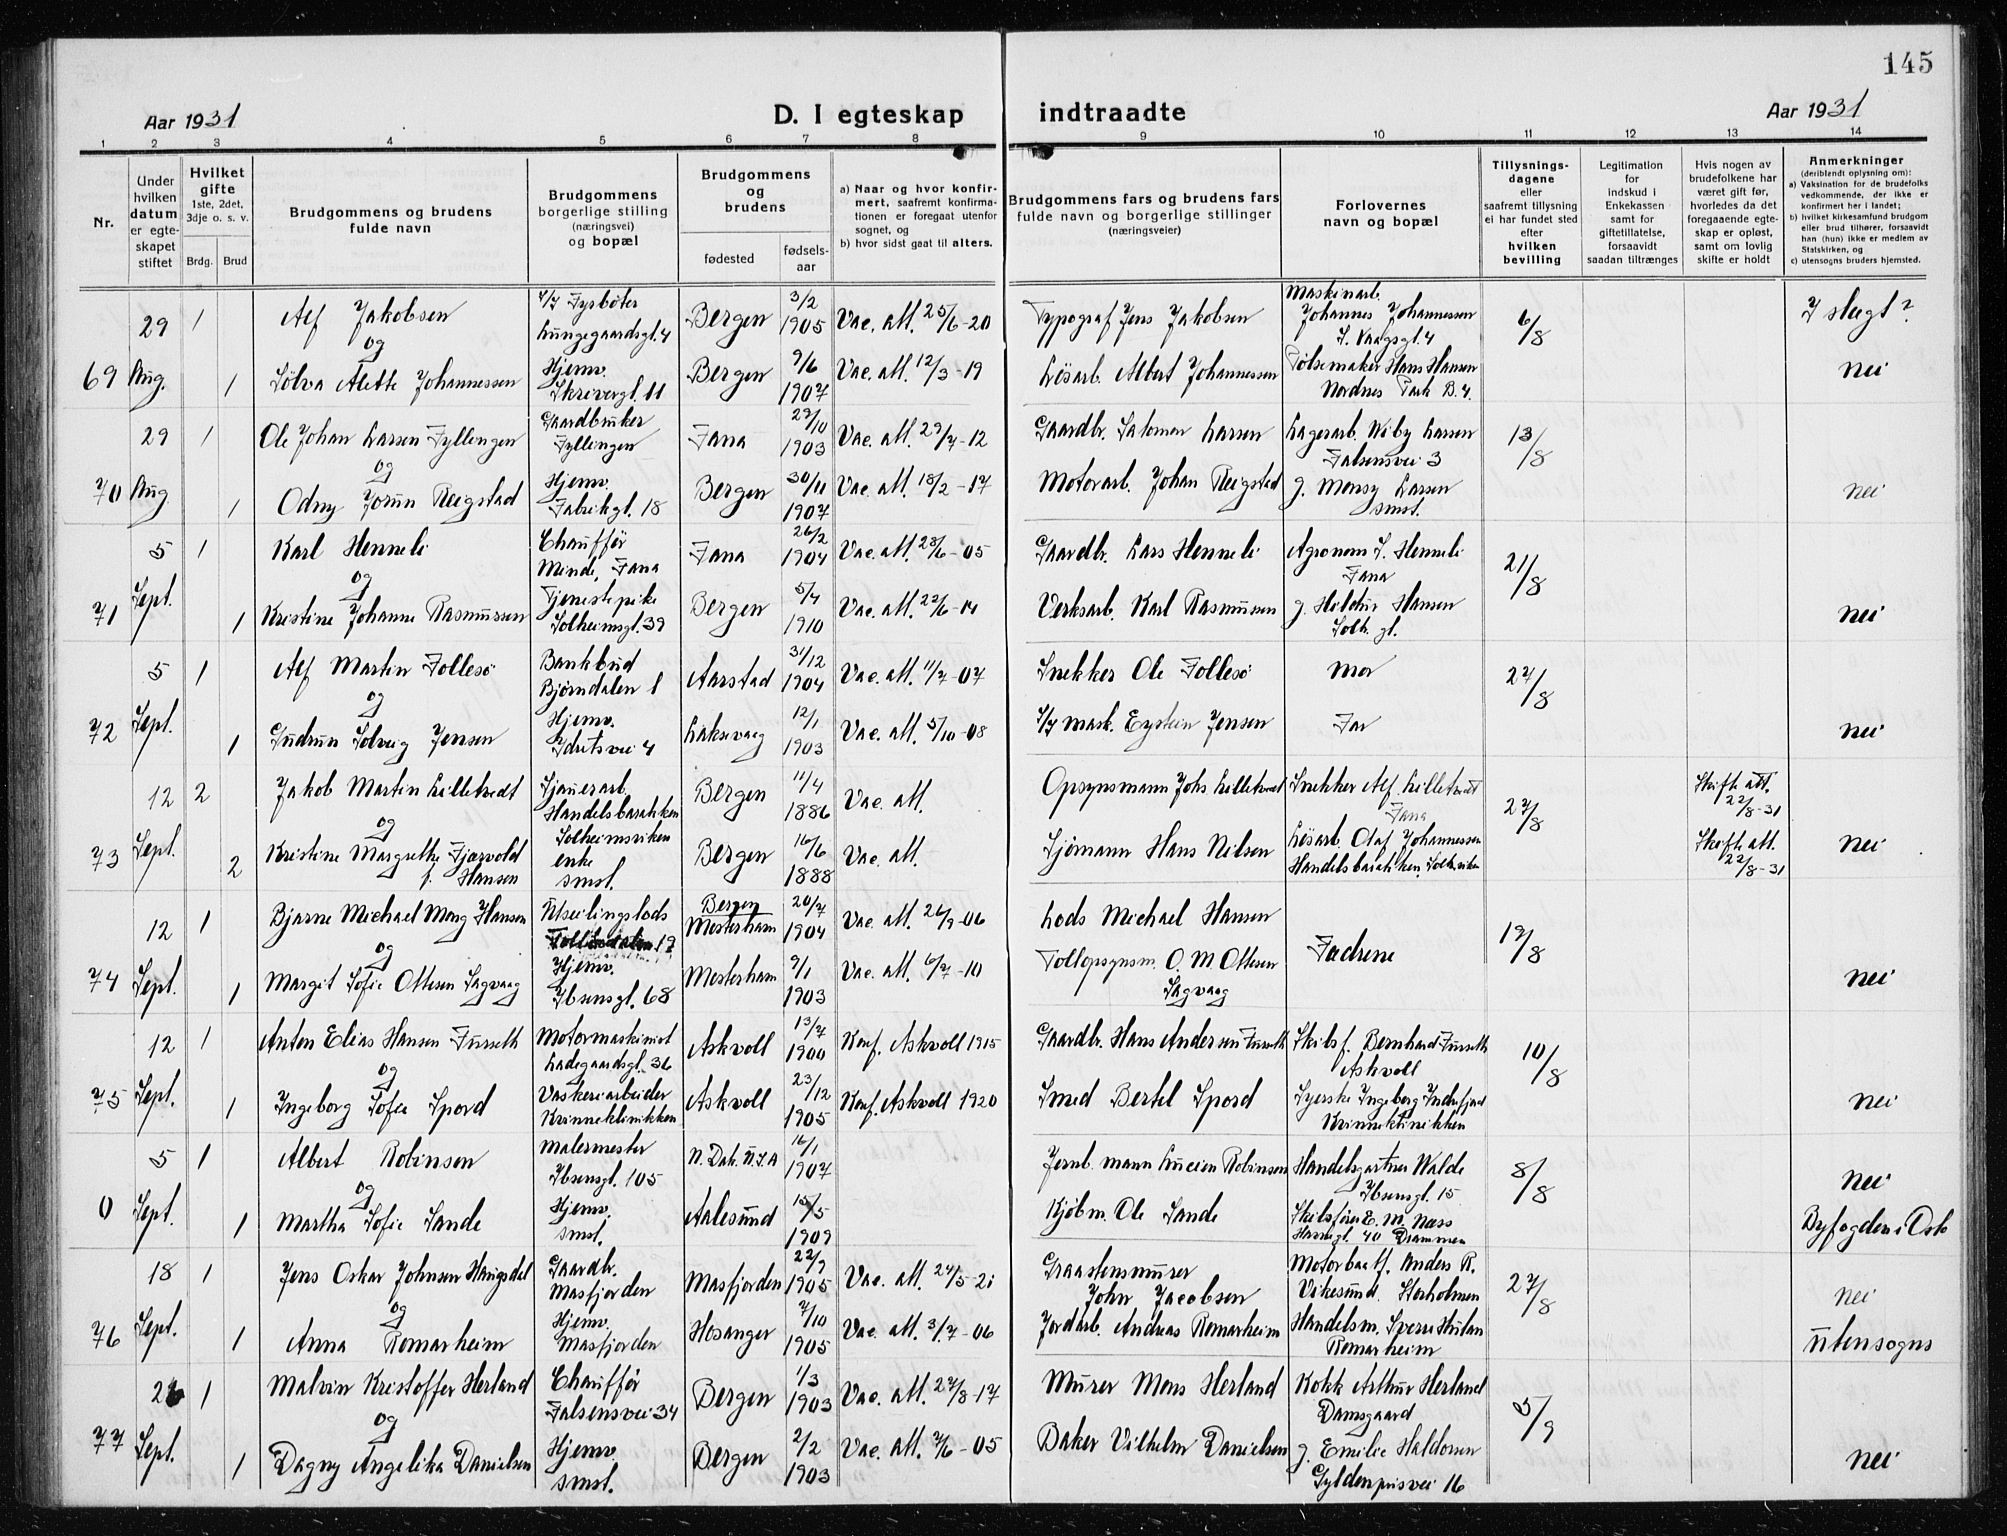 145
Aar 1931
D. I egteskap indtraadte
Aar 1931
1 2 3 4 5 6 7 8 9 10 11 12 13 14
Nr.
Under hvilken datum er egteskapet stiftet
Hvilket gifte 1ste, 2det, 3dje o. s. v.
Brdg. Brud
Brudgommens og brudens fulde navn
Brudgommens borgerlige stilling (næringsvei) og bopæl
Brudgommens og brudens
fødested
fødselsaar
a) Naar og hvor konfirmert, saafremt konfirmationen er foregaat utenfor sognet, og
b) hvor sidst gaat til alters.
Brudgommens fars og brudens fars fulde navn og borgerlige stillinger (næringsveier)
Forlovernes navn og bopæl
Tillysningsdagene eller saafremt tillysning ei har fundet sted efter hvilken bevilling
Legitimation for indskud i Enkekassen samt for giftetillatelse, forsaavidt saadan tiltrænges
Hvis nogen av brudefolkene har været gift før, hvorledes da det foregaaende egteskap er opløst, samt om lovlig skifte er holdt
Anmerkninger (deriblendt oplysning om):
a) Vaksination for de brudefolks vedkommende, der ikke er konfirmert her i landet;
b) hvilket kirkesamfund brudgom eller brud tilhører, forsaavidt han (hun) ikke er medlem av Statskirken, og
c) utensogns bruders hjemsted.
29 1 Alf Jakobsen Fyrbøter Lungegaardsgt. 4 Bergen 3/2 1905 Vac. att. 25/6-20 Typograf Jens Jakobsen Maskinarb. Johannes Johannessen 6/8 I slegt?
og
69 Aug. 1 Sølva Alette Johannessen Hjemv. Skrivergt. 11 Bergen 9/6 1907 Vac. att. 12/3-19 Løsarb. Albert Johannessen Pølsemaker Hans Hansen Nordnes Park B. 4. nei
29 1 Ole Johan Larsen Fyllingen Gaardbruker Fyllingen Fana 29/10 1903 Vac. att. 29/7-12 Gaardbr. Salomon Larsen Lagerarb. Wiby Larsen Falsensvei 3 13/8
og
70 Aug 1 Odny Jorun Reigstad Hjemv. Fabrikgt. 18 Bergen 30/11 1907 Vac. att. 18/2-17 Motorarb. Johan Reigstad g. Monsy Larsen smst. nei
5 1 Karl Henneli Chauffør Minde, Fana Fana 26/2 1904 Vac. att. 28/6-05 Gaardbr. Lars Henneli Agronom S. Henneli Fana 21/8
og
71 Sept. 1 Kristine Johanne Rasmussen Tjenestepike Solheimsgt. 39 Bergen 5/4 1910 Vac. att. 22/6-14 Verksarb. Karl Rasmussen g. Hildur Hansen Solh. gt. nei
5 1 Alf Martin Follesø Bankbud Bjørndalen 1 Aarstad 31/12 1904 Vac. att. 11/7-07 Snekker Ole Follesø Mor 27/8
og
72 Sept. 1 Gudrun Solveig Jensen Hjemv. Idrætsvei 4 Laksevaag 12/1 1903 Vac. att. 5/10-08 mask. Eystein Jensen Far nei
12 2 Jakob Martin Lilletvedt Sjauerarb. Handelsbarakken Solheimsviken Bergen 11/4 1886 Vac. att. Opsynsmann Johs. Lilletvedt Snekker Alf Lilletvedt Fana 27/8 Skifte att. 22/8-31
og
73 Sept. 2 Kristine Margrethe Fjærvold f. Hansen enke smst. Bergen 16/6 1888 Vac. att. Sjømann Hans Nilsen Løsarb. Olaf Johannessen Handelsbarakken, Solh.viken Skifte att. 22/8-31 nei
12 1 Bjarne Michael Mong Hansen Utseilingslods 19 Bergen Mosterhavn 20/7 1904 Vac. att. 26/9-06 Lods Michael Hansen Fædrene 19/8
og
74 Sept. 1 Margit Sofie Ottesen Sagvaag Hjemv. Ibsensgt. 68 Mosterhavn 9/1 1903 Vac. att. 6/7-10 Tollopsynsm. O. M. Ottesen Sagvaag nei
12 1 Anton Elias Hansen Furseth Motormaskinist Ladegaardsgt. 36 Askvoll 13/7 1900 Konf. Askvoll 1915 Gaardbr. Hans Andersen Furseth Skibsf. Bernhard Furseth Askvoll 10/8
og
75 Sept. 1 Ingeborg Sofie Spord Vaskeriarbeider Kvinneklinikken Askvoll 23/12 1905 Konf. Askvoll 1920 Smed Bertel Spord Syerske Ingeborg Indrefjord Kvinneklinikken nei
5 1 Albert Robinson Malermester Ibsensgt. 105 N. Dak. U.S.A 16/1 1907 Jernb. mann Lucien Robinson Handelsgartner Walde Ibsensgt. 15 8/8 nei
og
0 Sept. 1 Martha Sofie Sande Hjemv. smst. Aalesund 15/5 1909 Kjøbm. Ole Sande Skibsfører E. M. Næss Havnegt. 40 Drammen Byfogden i Oslo
18 1 Jens Oskar Johnsen Haugsdal Gaardbr. Masfjorden Masfjorden 22/9 1905 Vac. att. 24/5-21 Graastensmurer John Jacobsen Motorbaatf. Anders R. Vikesund. Storholmen 27/8 nei
og
76 Sept. 1 Anna Romarheim Hjemv. Masfjorden Hosanger 7/10 1905 Vac. att. 3/7-06 Jordarb. Andreas Romarheim Handelsm. Sverre Hulan Romarheim utensogns
26 1 Malvin Kristoffer Herland Chauffør Falsensvei 34 Bergen 1/3 1903 Vac. att. 27/8-17 Murer Mons Herland Kokk Arthur Herland Damsgaard 5/9
og
77 Sept. 1 Dagny Angelika Danielsen Hjemv. smst. Bergen 2/2 1903 Vac. att. 7/6-05 Baker Vilhelm Danielsen g. Emilie Haldorsen Gyldenprisvei 16 nei